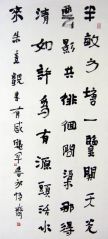 半畝方塘一鑒開天光
雲影共徘徊問渠那得
清如許為有源頭活水
來 朱熹觀書有感